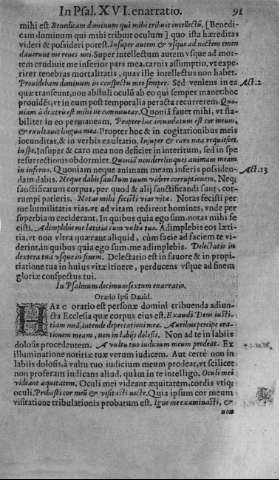 In Psal. XVI. enarratio. 91
mihi est Benedicam dominum qui mihi tribuit intellectū. [Benedi-
cam dominum qui mihi tribuit oculum] quo ista hæreditas
videri & possideri potest. Insuper autem & vsque ad noctem emen
dauerunt me renes mei. Super intellectum autem vsque ad mor-
tem erudiuit me inferior pars mea, carnis assumptio, vt expe-
rirer tenebras mortalitatis, quas ille intellectus non habet.
Prouidebam dominum in conspectu meo semper. Sed veniens in ea Act.2
quæ transeunt, non abstuli oculū ab eo qui semper manet hoc
prouidēs, vt in eum post temporalia peracta recurrerem. Quo-
niam à dextris est mihi ne commouear. Quoniā fauet mihi, vt sta-
biliter in eo permaneam. Propter hoc iucundatum est cor meum,
& exultauit lingua mea. Propter hoc & in cogitationibus meis
iocunditas, & in verbis exultatio. Insuper & caro mea requiescet
in spe. Insuper & caro mea non deficiet in interitum, sed in spe
resurrectionis obdormiet. Quoniā non derelinques animam meam
in inferno. Quoniam neque animam meam inferis possiden- Act.13
dam dabis. Neque dabis sanctum tuum videre corruptionem. Neque
sanctificatum corpus, per quod & alij sanctificandi sunt, cor-
rumpi patieris. Notas mihi fecisti vias vitæ. Notas fecisti per
me humilitatis vias, vt ad vitam redirent homines, vnde per
superbiam ceciderant. In quibus quia ego sum, notas mihi fe
cisti. Adimplebis me lætitia cum vultu tuo. Adimplebis eos læti-
tia, vt non vltra quærant aliquid, cum facie ad faciem te vi-
derint, in quibus quia ego sum, me adimplebis. Delectatio in
dextera tua vsque in finem. Delectatio est in fauore & in propi-
tiatione tua in huius vitæ itinere, perducens vsque ad finem
gloriæ conspectus tui.
In Psalmum decimumsextum enarratio.
Oratio ipsi Dauid.
HAEC oratio est personæ domini tribuenda adiun-
cta Ecclesia quæ corpus eius est. Exaudi Deus iusti-
tiam meā, intende deprecationi meæ. Auribus percipe ora-
tionem meam, non in labiis dolosis. Non ad te in labiis
dolosis procedentem. A vultu tuo iudicium meum prodeat. Ex
illuminatione notitiæ tuæ verum iudicem. Aut certè non in
labiis dolosis, à vultu tuo iudicium meum prodeat, vt scilicet
non proferam iudicans aliud, quàm in te intelligo. Oculi mei
videant æquitatem. Oculi mei videant æquitatem, cordis vtique
oculi. Probasti cor meū & visitasti nocte. Quia ipsum cor meum
visitatione tribulationis probatum est. Igne me examinasti, &
non